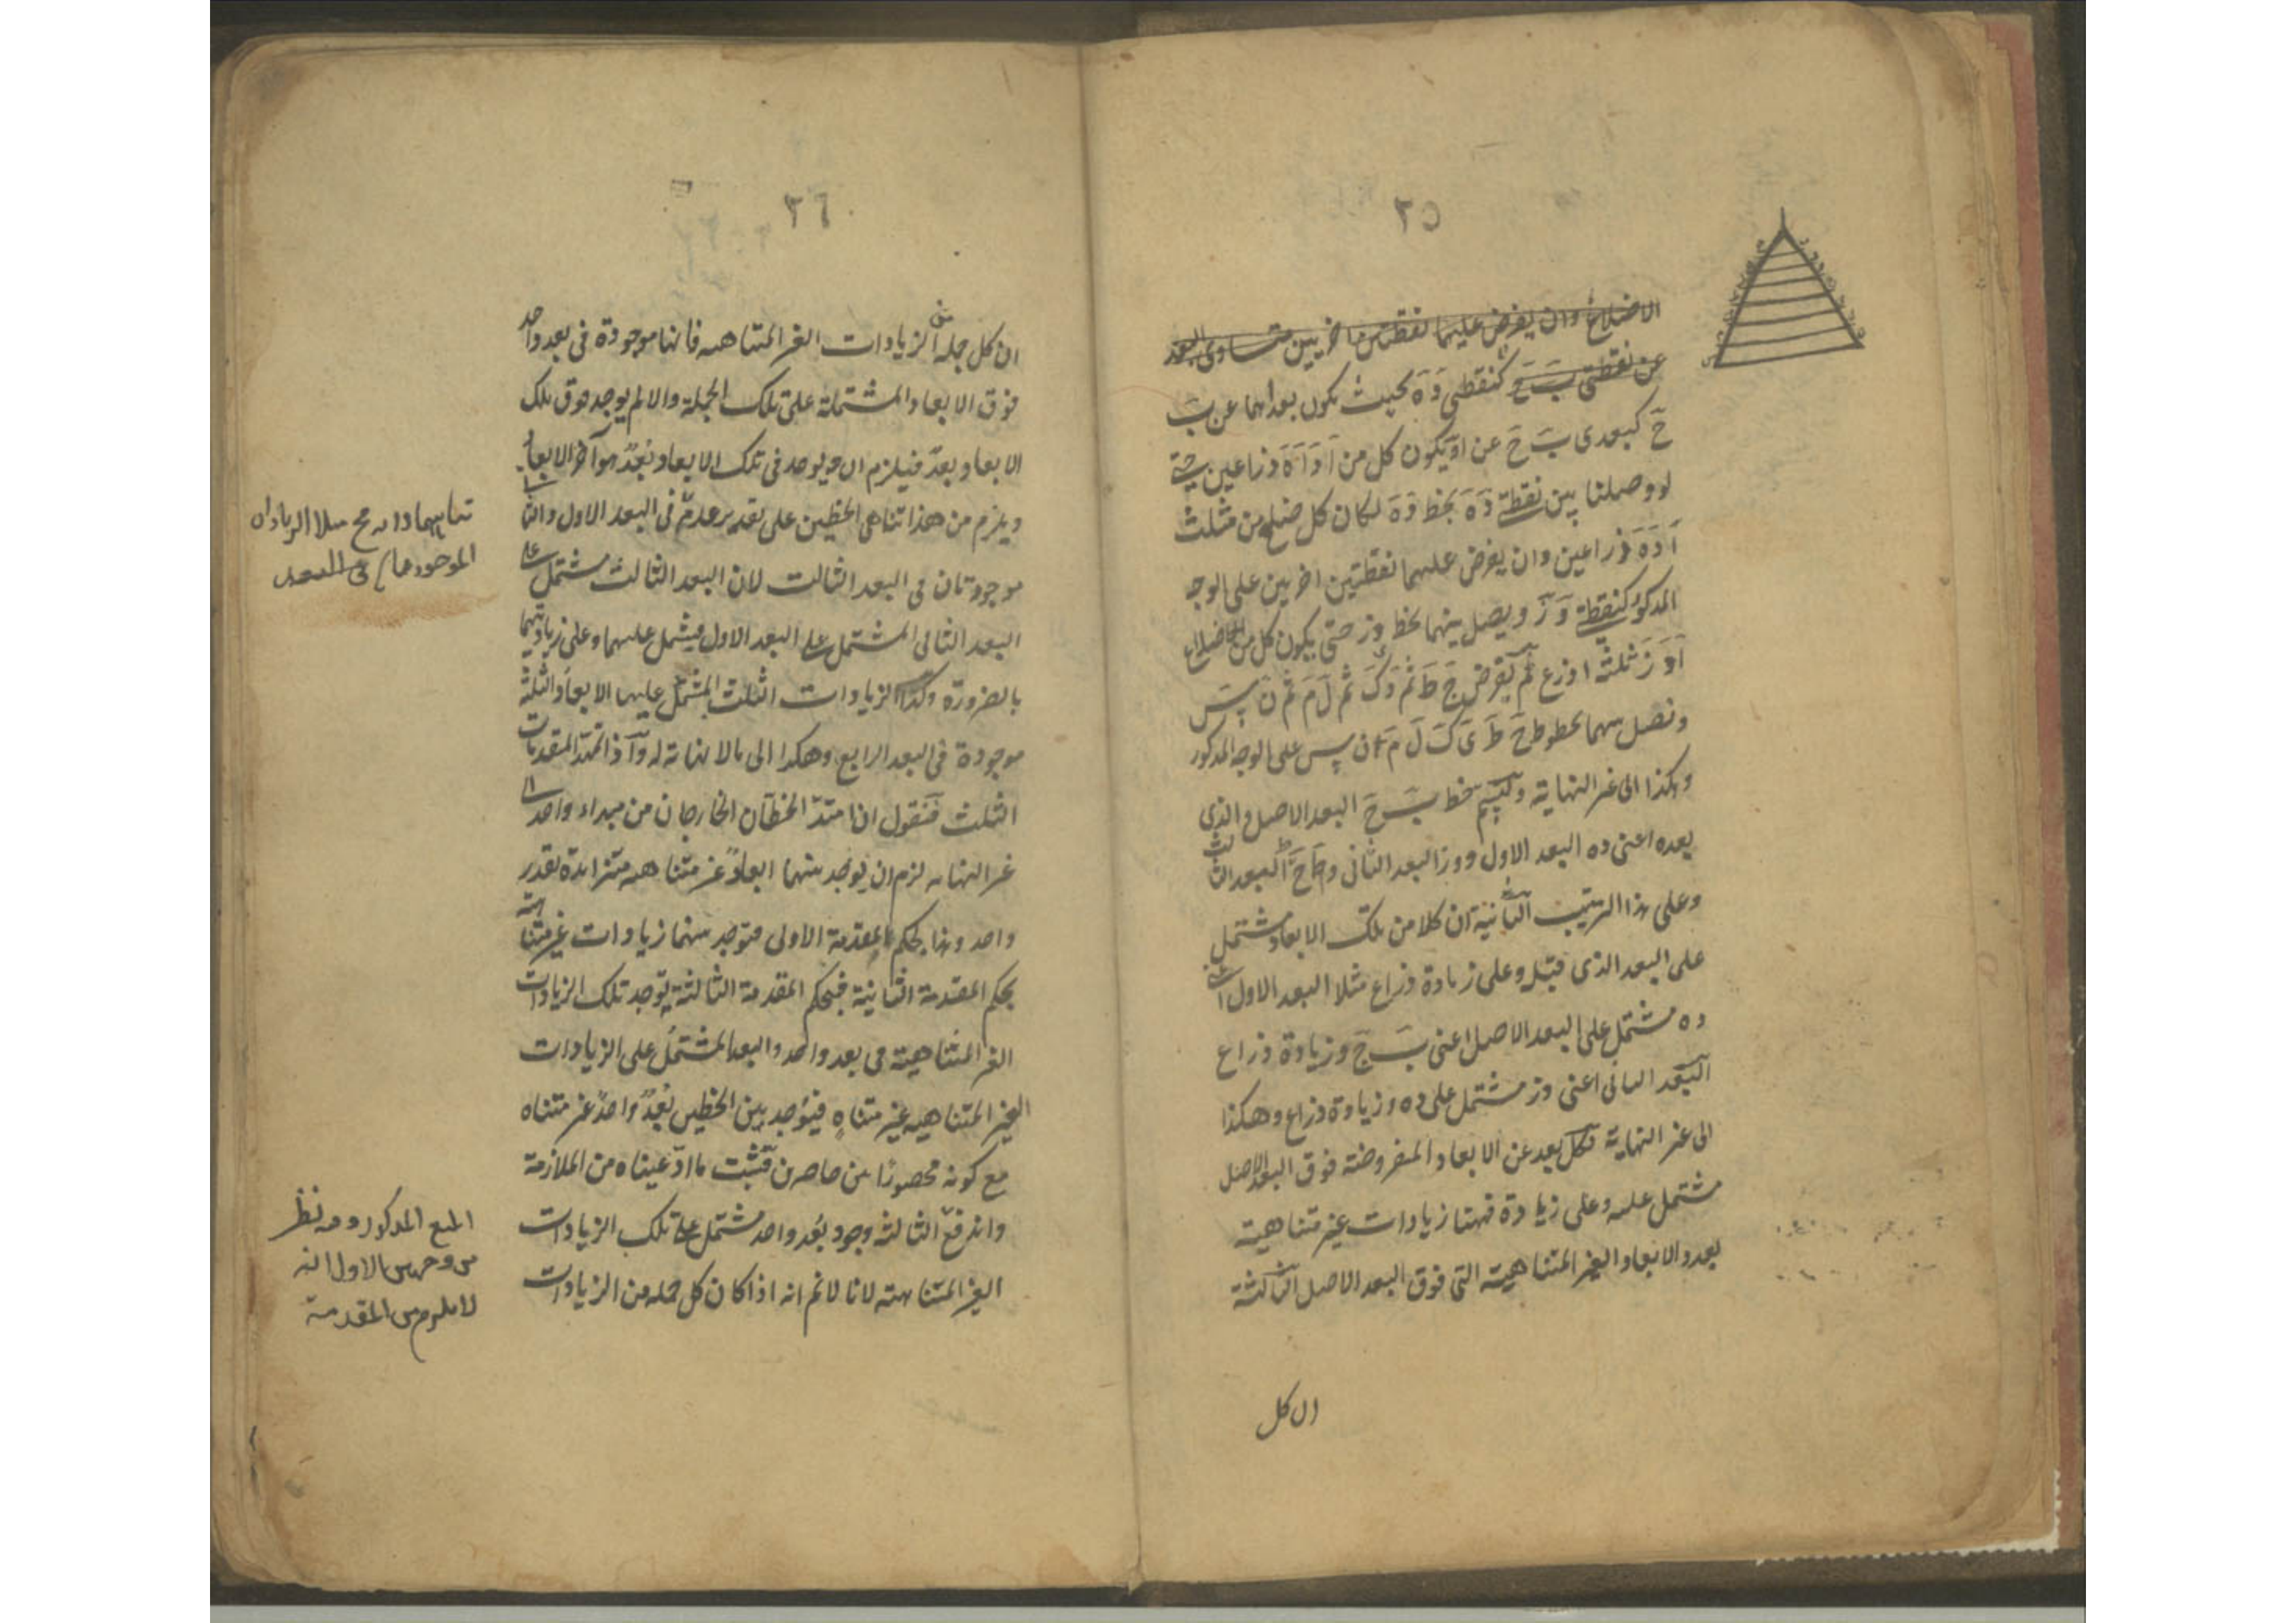 ٢٥
الاضلاع وان يفرض عليهما نقطتين اخريين متساوى البعد
عن نقطتى ب ح كنقطتى د ه بحيث يكون بعداهما عن ب
ح كبعدى ب ح عن ا ويكون كل من ا د ا ه ذراعين حتى
لو وصلنا بين نقطة د ه بخط د ه لكان كل ضلع من مثلث
ا د ه ذراعين وان يفرض عليهما نقطتين اخريين على الوجه
المذكور كنقطة و ز ويصل بينهما بخط وز حتى يكون كل من اضلاع
ا و ز ثلثة اذرع ثم يفرض ح ط ثم ى ك ثم ل م ثم ن س
ونصل بينهما بخطوط ح ط ى ك ل م ن س على الوجه المذكور
وهكذا الى غير النهاية وليسم خط ب ح البعد الاصل والذى
بعده اعنى ده البعد الاول ووز البعد الثانى وح ط البعد الثالث
وعلى هذا الترتيب الثانية ان كلا من تلك الابعاد مشتمل
على البعد الذى قبله وعلى زيادة ذراع مثلا البعد الاول اعنى
ده مشتمل على البعد الاصل اعنى ب ح وزيادة ذراع
البعد الثانى اعنى وز مشتمل على ده وزيادة ذراع وهكذا
الى غير النهاية فكل بعد من الابعاد المفروضة فوق البعد الاصل
مشتمل عليه وعلى زيادة فهنا زيادات غير متناهية
بعدد الابعاد الغير المتناهية التى فوق البعد الاصل الثالثة
ان كل
٢٦
ان كل جملة من الزيادات الغير المتناهية فانها موجودة فى بعد واحد
فوق الابعاد المشتملة على تلك الجملة والا لم يوجد فوق تلك
الابعاد بعد فيلزم ان يوجد فى تلك الابعاد بعد هو آخر الابعاد
ويلزم من هذا تناهى الخطين على تقدير عدم فى البعد الاول والثانى
موجودتان فى البعد الثالث لان البعد الثالث مشتمل على
البعد الثانى المشتمل على البعد الاول فيشتمل عليهما وعلى زيادتهما
بالضرورة وكذا الزيادات الثلث المشتمل عليها الابعاد الثلثة
موجودة فى البعد الرابع وهكذا الى ما لا نهاية له واذا تمهد المقدمات
الثلث فنقول اذا امتد الخطان الخارجان من مبداء واحد الى
غير النهايه لزم ان يوجد بينهما ابعاد غير متناهيه متزايدة بقدر
واحد وهذا بحكم المقدمة الاولى فتوجد بينهما زيادات غير متناهية
بحكم المقدمة الثانية فبحكم المقدمة الثالثة يوجد تلك الزيادات
الغير المتناهية فى بعد واحد والبعد المشتمل على الزيادات
الغير المتناهيه غير متناه فيوجد بين الخطين بعد واحد غير متناه
مع كونه محصورا بين حاصرين فثبت ما ادعيناه من الملازمة
واندفع الثالثة وجود بعد واحد مشتمل على تلك الزيادات
الغير المتناهية لانا لانم انه اذا كان كل جملة من الزيادات
الموجودتان فى البعد
المنع المذكور وفيه نظر
من وجهين الاول انه
لا يلزم من المقدمة